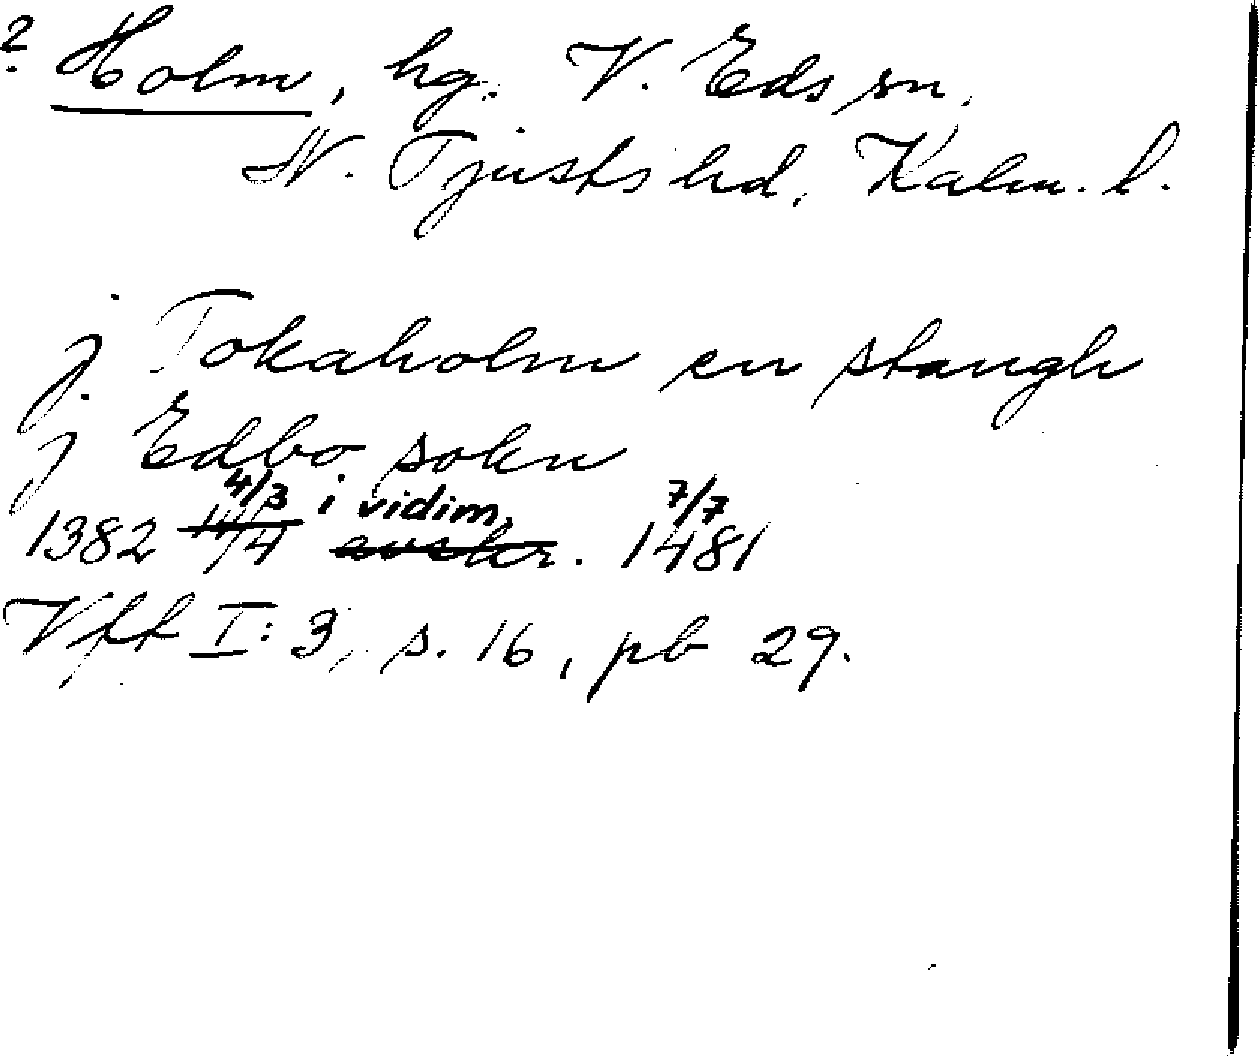 ? Holm, hg. V. Eds sn.
N. Tjusts hd, Kalm. l.
j Tokaholm en stangh
j Edbo sokn
4/3 i vidim. 7/7
1382 14/4 avskr. 1481
Vff I: 3, s. 16, pb 29.